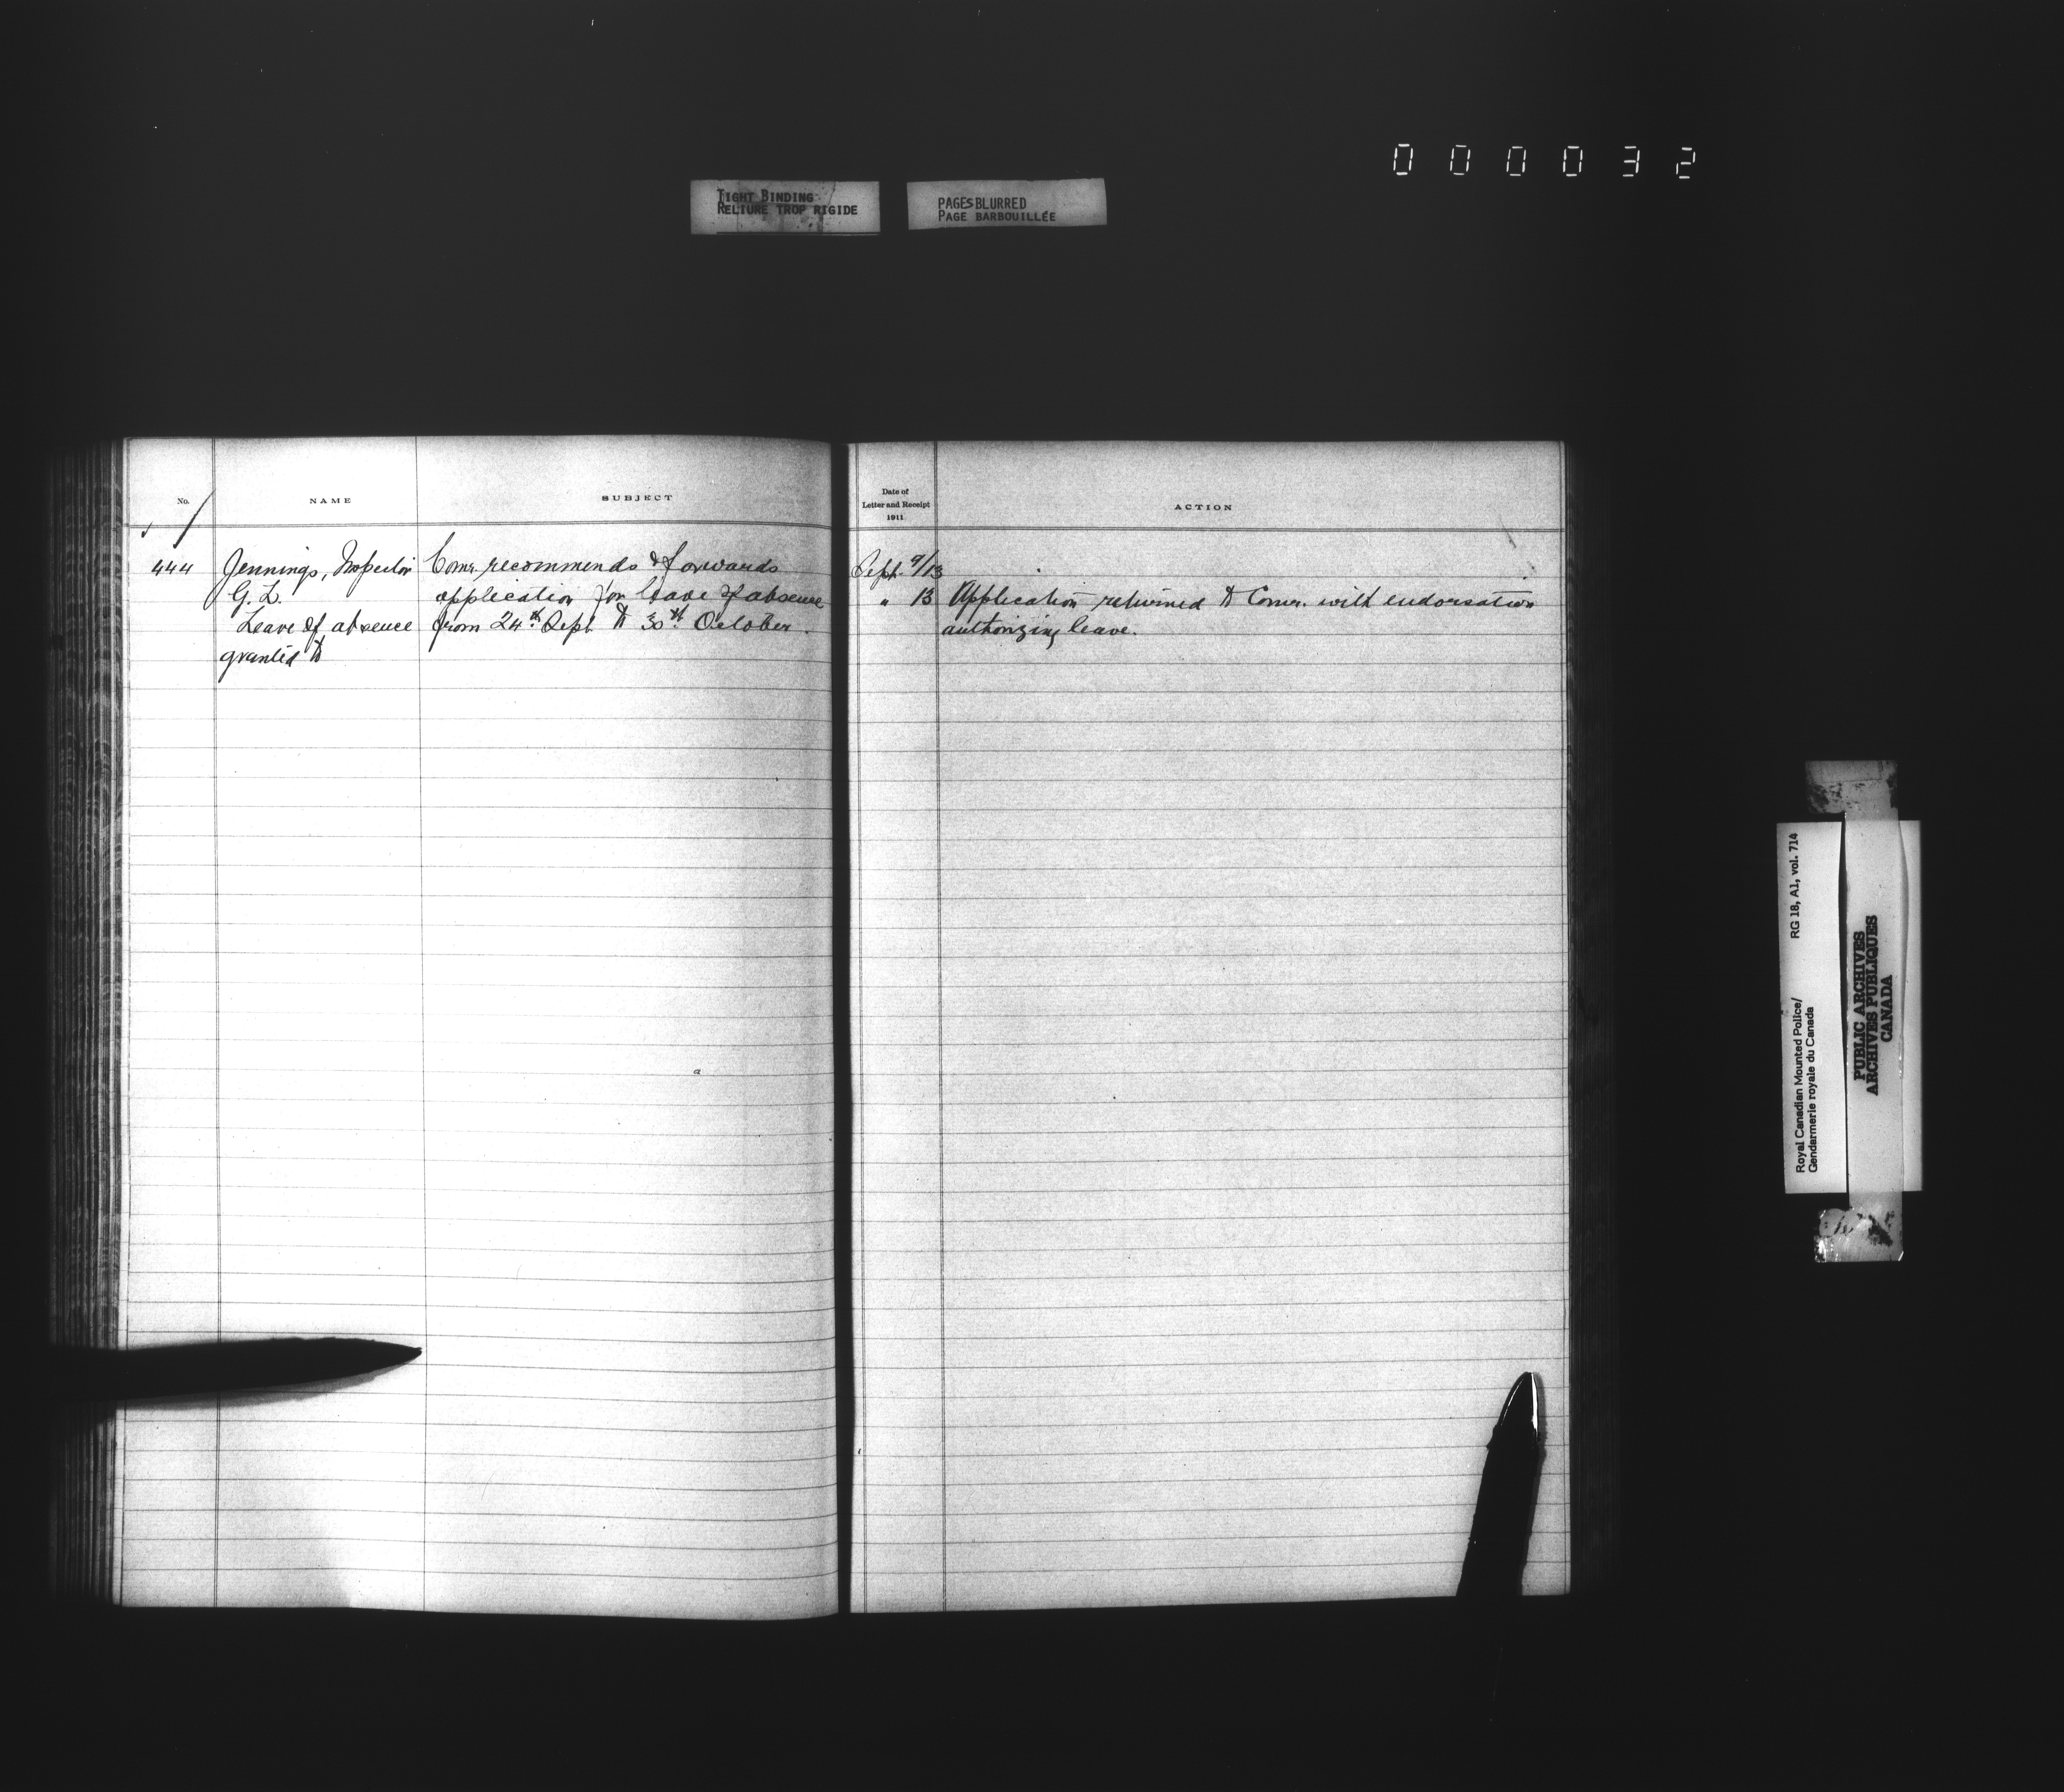 000032
TIGHT BINDING
RELIURE TROP RIGIDE
PAGES BLURRED
PAGE BARBOUILLÉE
No.
NAME
SUBJECT
444
Jennings, Inspector
G. L.
Leave of absence
granted to
Comr. recommends & forwards
application for leave of absence
from 24th Sept. to 30th October.
Date of
Letter and Receipt
1911
ACTION
Sept. 9/13
" 13 Application returned to Comr. with endorsation
authorizing leave.
RG 18, A1, vol. 714
Royal Canadian Mounted Police/
Gendarmerie royale du Canada
PUBLIC ARCHIVES
ARCHIVES PUBLIQUES
CANADA